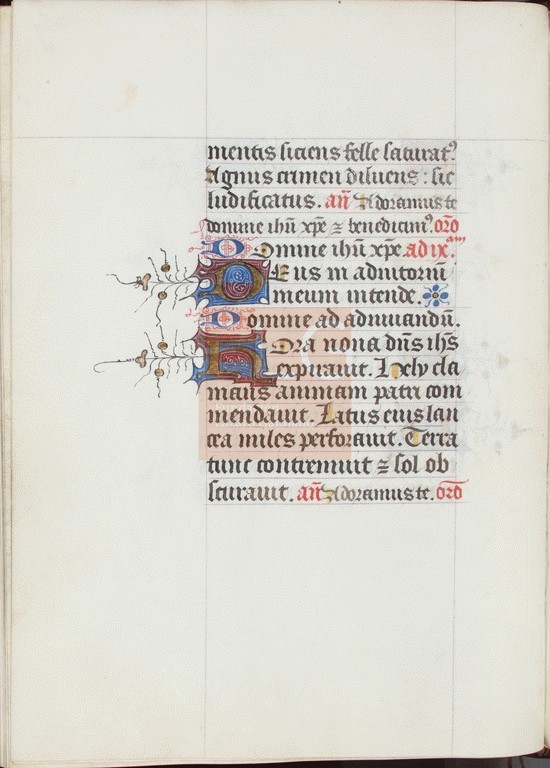 mentis siciens felle saturat᷒
Agnus crimen diluens : sic
ludificatus. an̄ Adoramus te
domine ihū xp̄e ⁊ benedicim᷒. orō
Domine ihū xp̄e. ad ix.am
Deus in adiutoriū
meum intende.
Domine ad adiuuandū.
Hora nona dn̄s ihs̄
expirauit. Hely cla
mans animam patri com
mendauit. Latus eius lan
cea miles perforauit. Terra
tunc contremuit ⁊ sol ob
scurauit. an̄ Adoramus te. orō